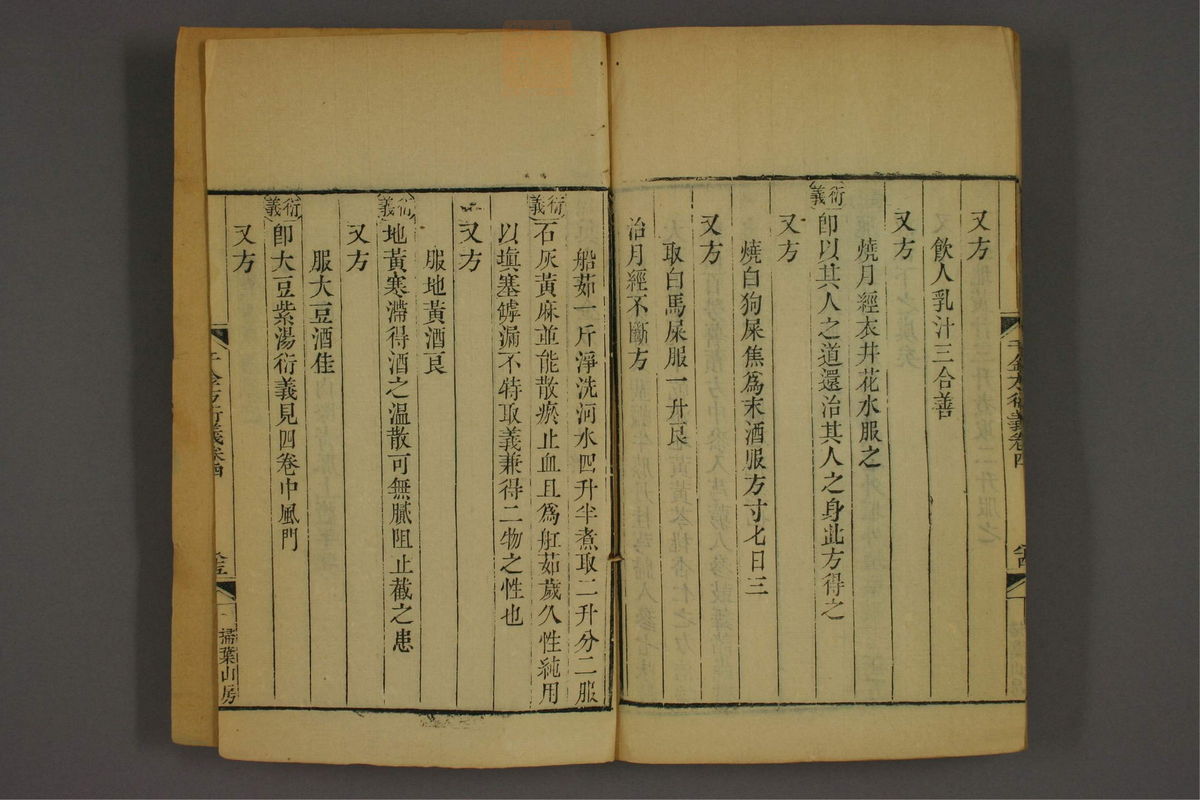 又方
飲人乳汁三合善
又方
燒月經衣井花水服之
衍義
卽以其人之道還治其人之身此方得之
又方
燒白狗屎焦爲末酒服方寸七日三
又方
取白馬尿服一升良
治月經不斷方
船茹一斤淨洗河水四升半煮取二升分二服
衍義
石灰黃麻並能散瘀止血且爲舡茹歲久性純用
以塡塞罅漏不特取義兼得二物之性也
又方
服地黃酒良
衍義
地黃寒滯得酒之溫散可無膩阻止截之患
又方
服大豆酒佳
衍義
卽大豆紫湯衍義見四卷中風門
又方
掃葉山房